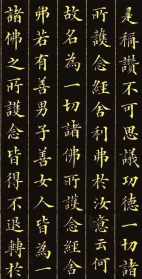 是稱讚不可思議功德一切諸
所護念經舍利弗於汝意云何
故名為一切諸佛所護念經舍
弗若有善男子善女人皆為一
諸佛之所護念皆得不退轉於